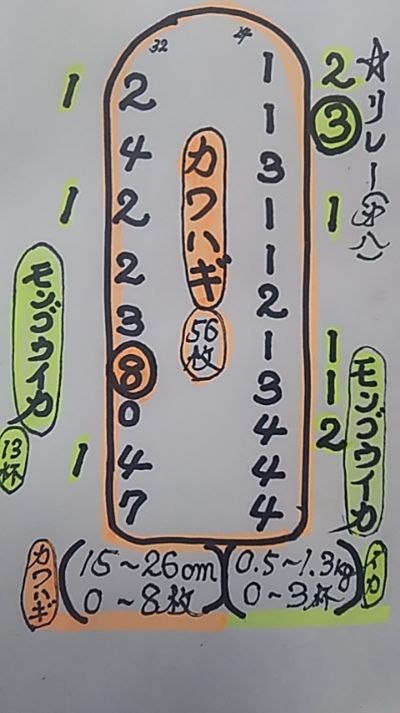 32 24
1 2 1 2
4 1 ③
1 2 3
2 1 1
3 1
⑧ 2
0 1 1
1 4 3 1
7 4 2
4
4
☆リレー
カワハギ
56
枚
モンゴウイカ
13
杯
モンゴウイカ
カワハギ
(15～26cm
0～8枚)
(0.5～1.3kg
0～3杯)
イカ